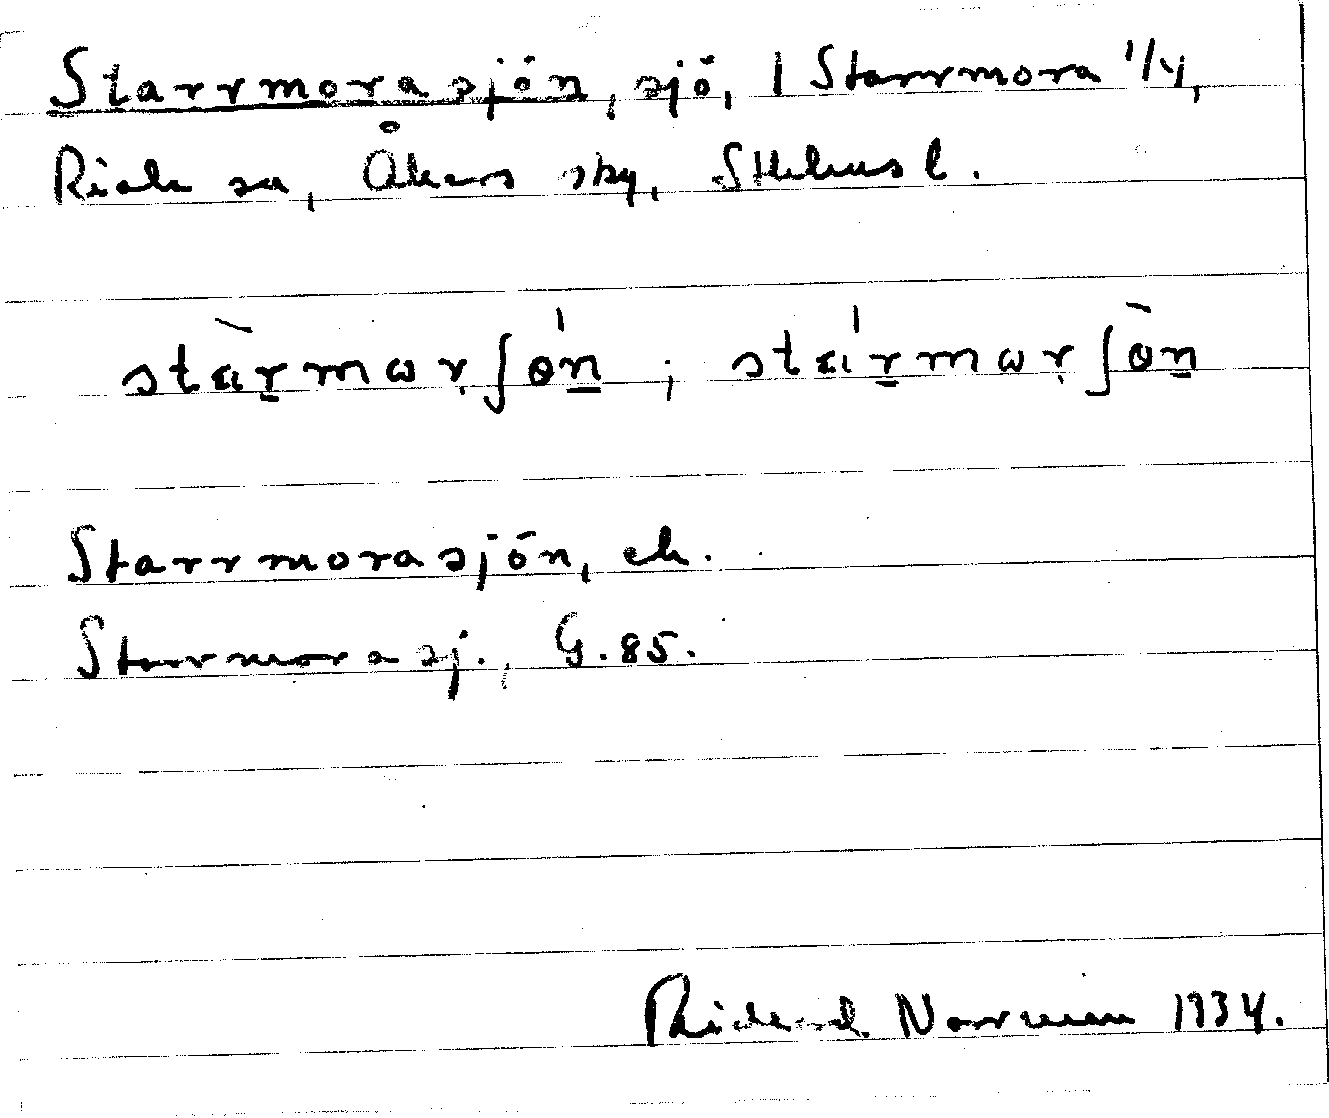 Starrmorasjön, sjö, 1 Starrmora 1/4,
Riala sn, Åkers sky, Sthlms l.
stàrmωrʃǿn ; stármωrʃòn
Starrmorasjön, ek.
Starrmora sj., G.85.
Rickard Norrman 1934.